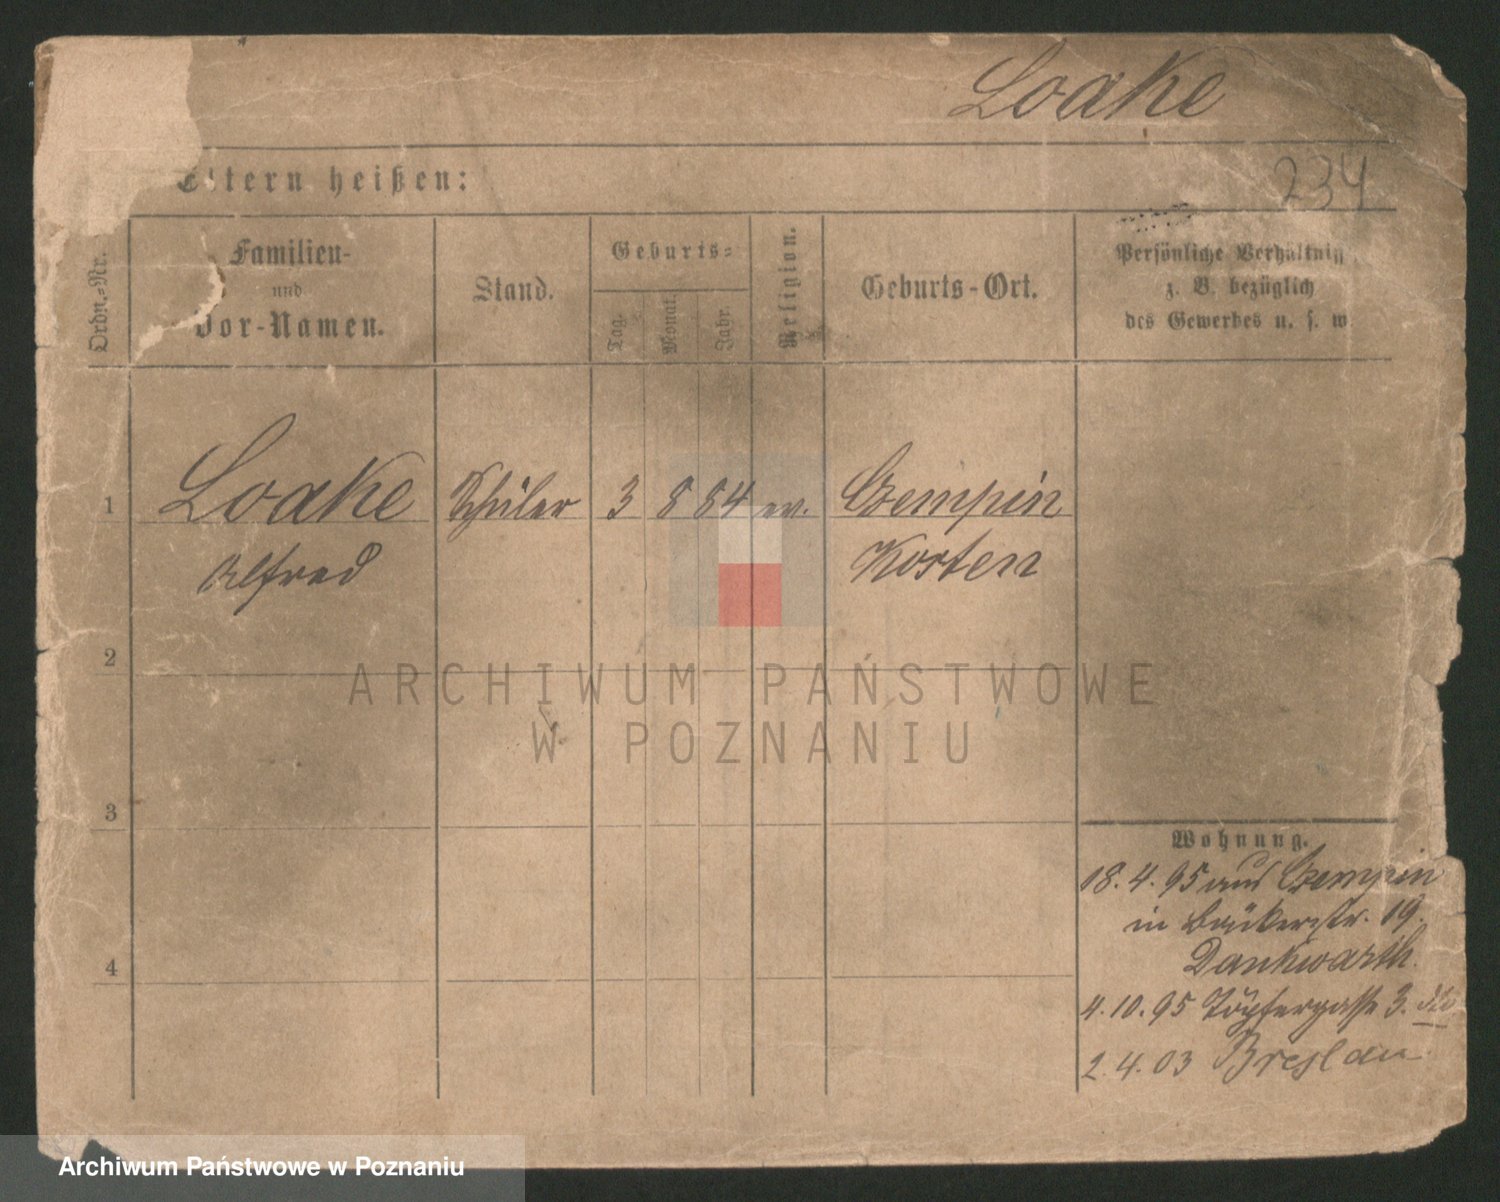 Loake
234
Eltern heißen:
Ordn.-Nr.
Familien-
und
Vor-Namen.
Stand.
Geburts-
Tag.
Monat.
Jahr.
Religion.
Geburts-Ort.
Persönliche Verhältniss
z. B. bezüglich
des Gewerbes u. s. w.
1 Loake Schüler 3 8 84 ev. Czempin
Alfred Kosten
2
3
4
Wohnung.
18.4.95 aus Czempin
in Bäckerstr. 19.
Dankwarth.
4.10.95 Töpfergasse 3. dto
2.4.03 Breslau
ARCHIWUM PAŃSTWOWE
W POZNANIU
Archiwum Państwowe w Poznaniu